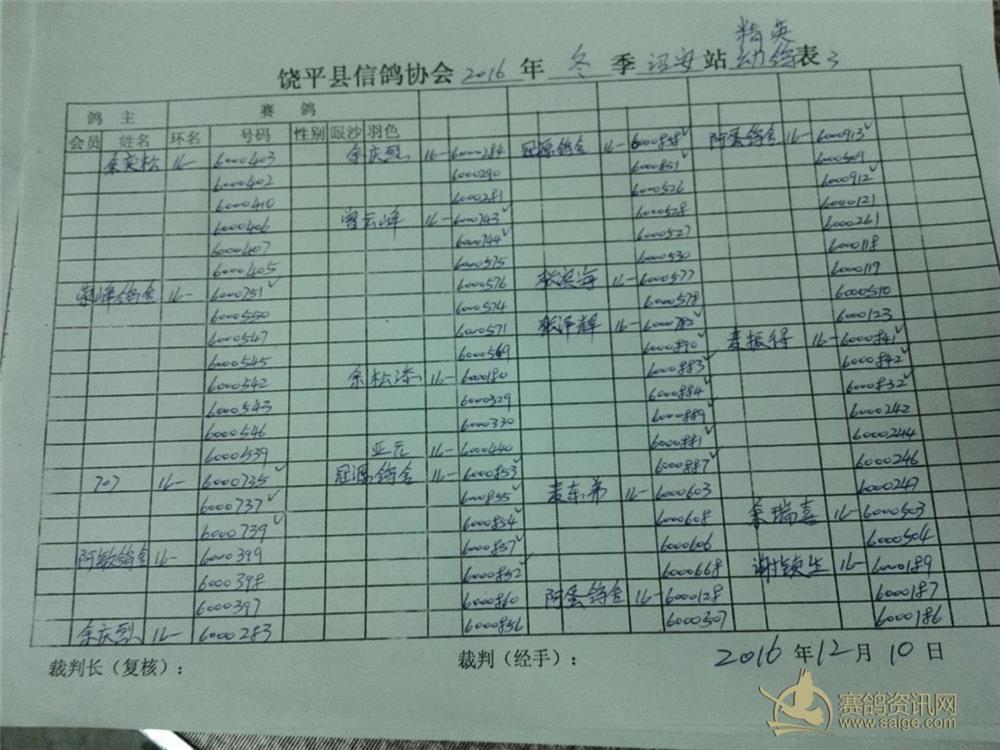 精英
饶平县信鸽协会 2016 年 冬 季 诏安 站 幼鸽 表 3
鸽 主 赛 鸽
会员 姓名 环名 号码 性别 眼沙 羽色
余奕松 16- 6000403 余庆烈 16- 6000284 冠源鸽舍 16- 6000858 阿蛋鸽舍 16- 6000913
6000402 6000290 6000851 6000509
6000410 6000281 6000526 6000912
6000406 曾云峰 16- 6000743 6000528 6000121
6000407 6000744 6000527 6000261
6000405 6000575 6000530 6000118
16- 6000751 6000576 张滨海 16- 6000577 6000119
6000550 6000574 6000578 6000510
6000547 6000571 张泽辉 16- 6000782 6000123
6000545 6000569 6000890 麦振得 16- 6000841
6000542 余松添 16- 6000180 6000883 6000842
6000543 6000329 6000884 6000832
6000546 6000330 6000889 6000242
6000539 亚元 16- 6000440 6000881 6000244
707 16- 6000735 冠源鸽舍 16- 6000853 6000887 6000246
6000737 6000855 麦东弟 16- 6000603 6000249
6000739 6000854 6000608 余瑞喜 16- 6000503
阿敏鸽舍 16- 6000399 6000857 6000606 6000504
6000398 6000852 6000668 谢镇生 16- 6000189
6000397 6000860 阿蛋鸽舍 16- 6000128 6000187
余庆烈 16- 6000283 6000856 6000307 6000186
裁判长（复核）： 裁判（经手）： 2016 年 12 月 10 日
赛鸽资讯网
www.saige.com